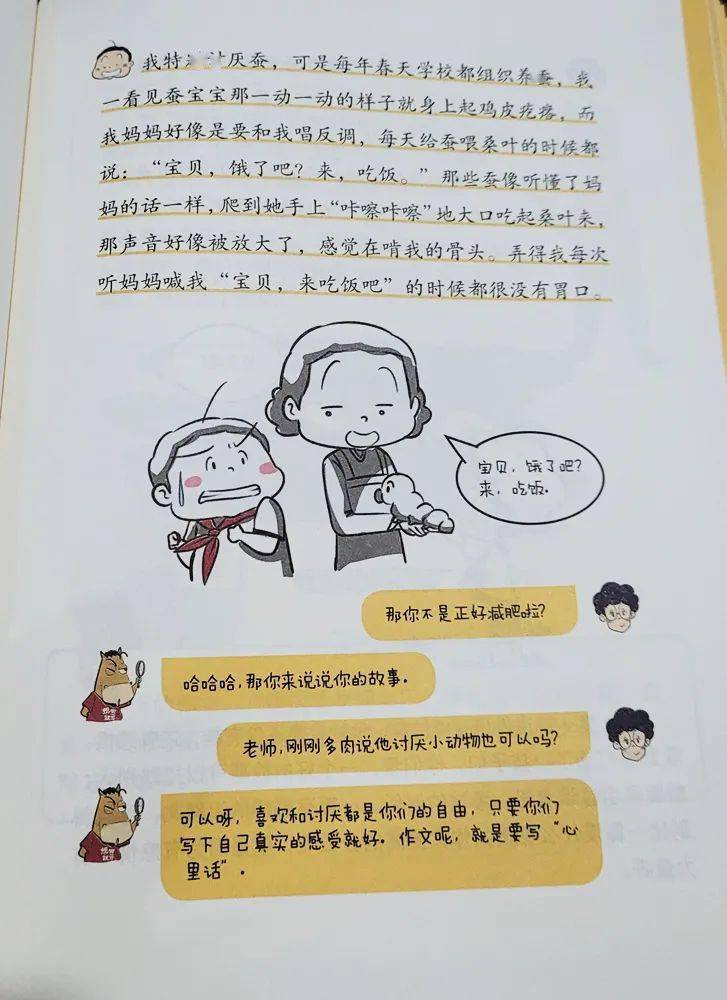 我特 厌蚕，可是每年春天学校都组织养蚕，我
一看见蚕宝宝那一动一动的样子就身上起鸡皮疙瘩，而
我妈妈好像是要和我唱反调，每天给蚕喂桑叶的时候都
说：“宝贝，饿了吧？来，吃饭。”那些蚕像听懂了妈
妈的话一样，爬到她手上“咔嚓咔嚓”地大口吃起桑叶来，
那声音好像被放大了，感觉在啃我的骨头。弄得我每次
听妈妈喊我“宝贝，来吃饭吧”的时候都很没有胃口。
宝贝，饿了吧？
来，吃饭。
那你不是正好减肥啦？
哈哈哈，那你来说说你的故事。
老师，刚刚多肉说他讨厌小动物也可以吗？
可以呀，喜欢和讨厌都是你们的自由，只要你们
写下自己真实的感受就好。作文呢，就是要写“心
里话”。